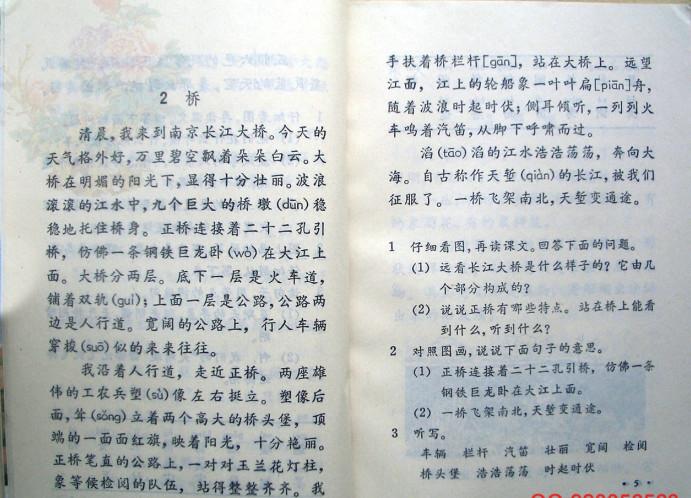 2 桥
清晨,我来到南京长江大桥。今天的
天气格外好,万里碧空飘着朵朵白云。大
桥在明媚的阳光下,显得十分壮丽。波浪
滚滚的江水中,九个巨大的桥墩(dūn)稳
稳地托住桥身。正桥连接着二十二孔引
桥,仿佛一条钢铁巨龙卧(wò)在大江上
面。大桥分两层。底下一层是火车道,
铺着双轨(guǐ);上面一层是公路,公路两
边是人行道。宽阔的公路上,行人车辆
穿梭(suō)似的来来往往。
我沿着人行道,走近正桥。两座雄
伟的工农兵塑(sù)像左右挺立。塑像后
面,耸(sǒng)立着两个高大的桥头堡,顶
端的一面面红旗,映着阳光,十分艳丽。
正桥笔直的公路上,一对对玉兰花灯柱,
象等候检阅的队伍,站得整整齐齐。我
手扶着桥栏杆[gān],站在大桥上。远望
江面,江上的轮船象一叶叶扁[piān]舟,
随着波浪时起时伏;侧耳倾听,一列列火
车鸣着汽笛,从脚下呼啸而过。
滔(tāo)滔的江水浩浩荡荡,奔向大
海。自古称作天堑(qiàn)的长江,被我们
征服了。一桥飞架南北,天堑变通途。
1 仔细看图,再读课文。回答下面的问题。
(1) 远看长江大桥是什么样子的?它由几
个部分构成的?
(2) 说说正桥有哪些特点。站在桥上能看
到什么,听到什么?
2 对照图画,说说下面句子的意思。
(1) 正桥连接着二十二孔引桥,仿佛一条
钢铁巨龙卧在大江上面。
(2) 一桥飞架南北,天堑变通途。
3 听写。
车辆 栏杆 汽笛 壮丽 宽阔 检阅
桥头堡 浩浩荡荡 时起时伏
· 5 ·